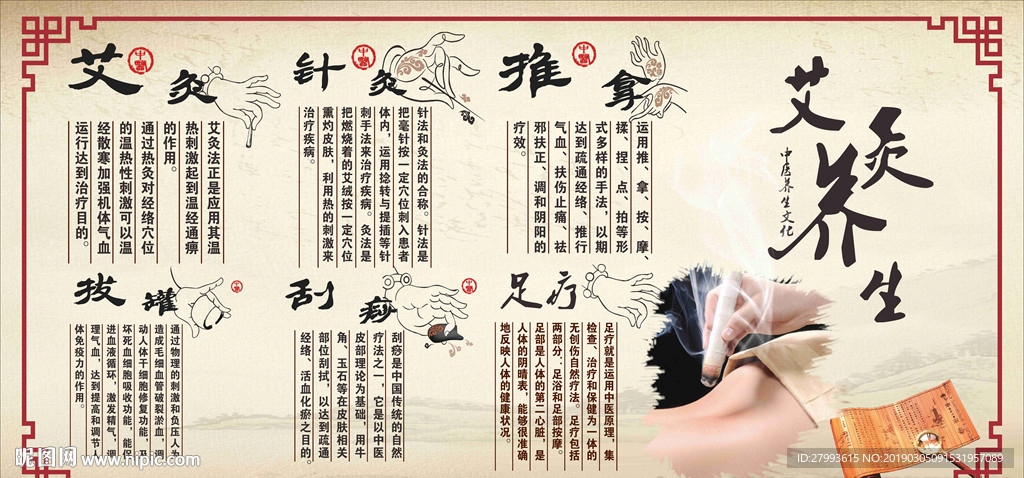 艾灸养生
中医养生文化
艾灸
中医
艾灸法正是应用其温
热刺激起到温经通痹
的作用。
通过热灸对经络穴位
的温热性刺激可以温
经散寒加强机体气血
运行达到治疗目的。
针灸
中医
针法和灸法的合称。针法是
把毫针按一定穴位刺入患者
体内，运用捻转与提插等针
刺手法来治疗疾病。灸法是
把燃烧着的艾绒按一定穴位
熏灼皮肤，利用热的刺激来
治疗疾病。
推拿
中医
运用推、拿、按、摩、
揉、捏、点、拍等形
式多样的手法，以期
达到疏通经络、推行
气血、扶伤止痛、祛
邪扶正、调和阴阳的
疗效。
拔罐
中医
通过物理的刺激和负压人为
造成毛细血管破裂淤血，调
动人体干细胞修复功能，及
坏死血细胞吸收功能，能促
进血液循环，激发精气，调
理气血，达到提高和调节人
体免疫力的作用。
刮痧
中医
刮痧是中国传统的自然
疗法之一，它是以中医
皮部理论为基础，用牛
角、玉石等在皮肤相关
部位刮拭，以达到疏通
经络、活血化瘀之目的。
足疗
足疗就是运用中医原理，集
检查、治疗和保健为一体的
无创伤自然疗法。足疗包括
两部分：足浴和足部按摩。
足部是人体的第二心脏，是
人体的阴晴表，能够很准确
地反映人体的健康状况。
昵图网 www.nipic.com
ID:27993615 NO:20190305091531957089